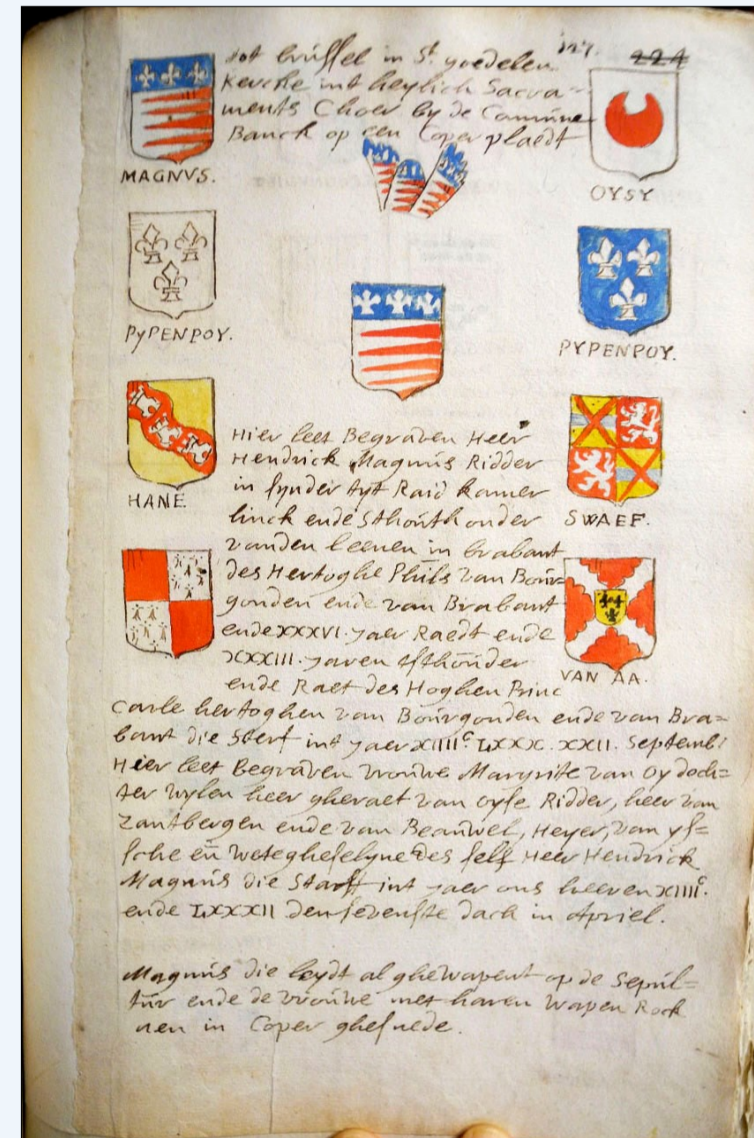 127. 224
tot brussel in St. goedelen
Kercke int heylich Sacra-
ments Choer by de Comune
Banck op een Coper plaedt
MAGNVS.
OYSY
PYPENPOY.
PYPENPOY.
HANE
SWAEF.
VAN AA.
Hier leet Begraven Heer
Hendrick Magnus Ridder
in synder tyt Raid kamer
linck ende Sthouth onder
vanden leenen in brabant
des Hertoghe Phils van Bour-
gonden ende van Brabant
ende XXXVI. jaer Raedt ende
XXXIII. jaren sthouder
ende Raet des Hoghen Princ
Carle hertoghen van Bourgonden ende van Bra=
bant die Sterf int jaer XIIIIc LXXX. XXII. Septemb:
Hier leet Begraven vrouwe Margrite van oy doch=
ter wylen heer gheraet van oyse Ridder, heer van
Zantbergen ende van Beauwel, Heyer, van ys=
sche en wetegheselyne des self Heer Hendrick
Magnus die Starff int jaer ons heeren XIIIIc.
ende LXXXII den sevenste dach in Apriel.
Magnus die leydt al ghewapent op de Sepul=
tur ende de vrouwe met haren wapen Rock
aen in Coper ghesnede.